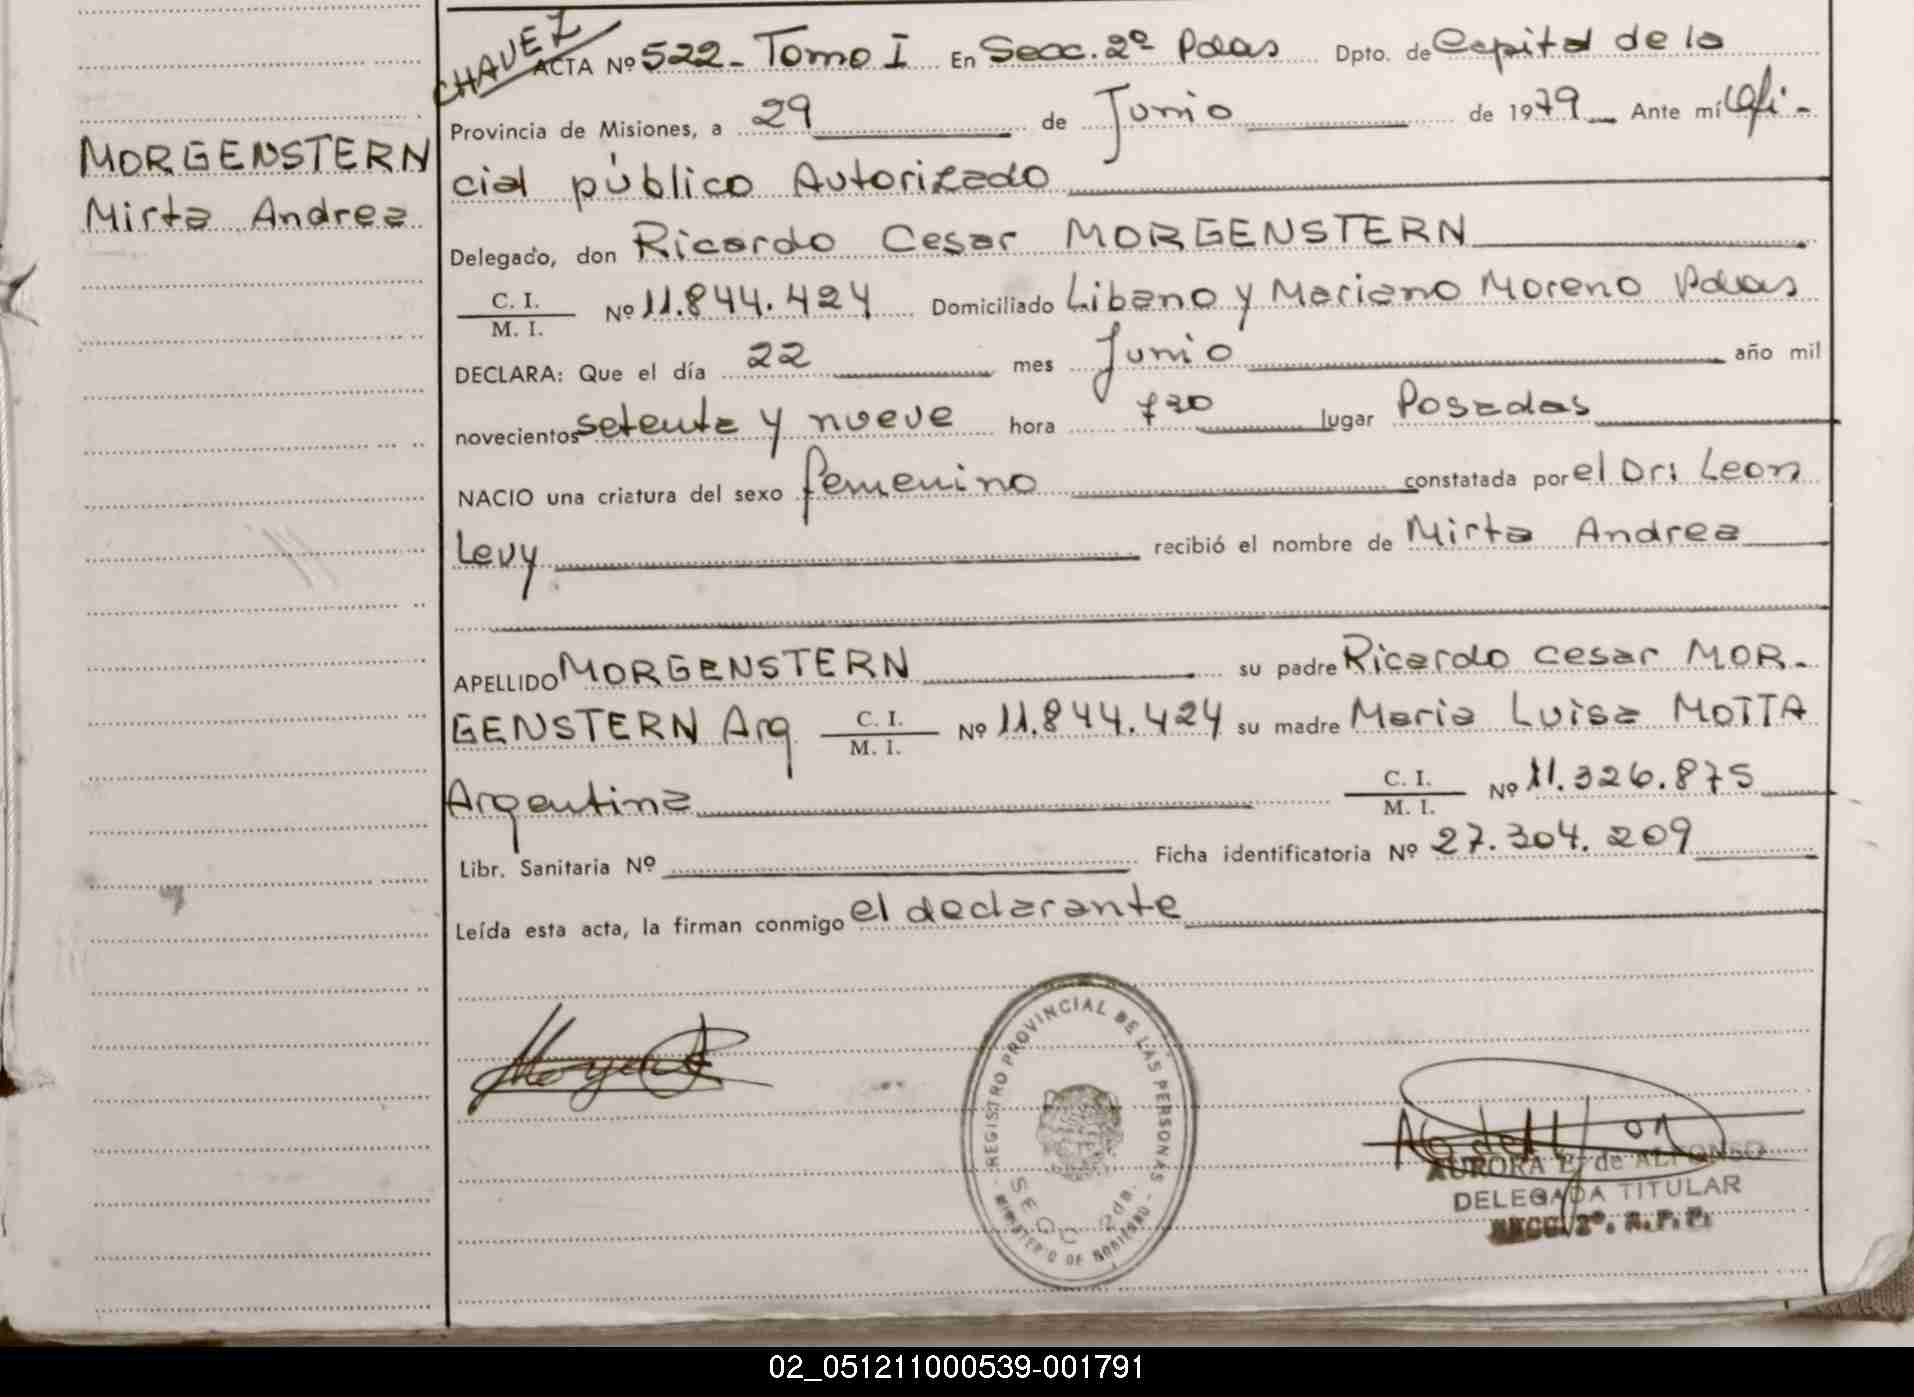 CHAVEZ
ACTA Nº 522 - Tomo I En Secc. 2º Pdas Dpto. de Capital de la
Provincia de Misiones, a 29 de Junio de 1979 Ante mí Ofi-
cial público Autorizado
MORGENSTERN
Mirta Andrea
Delegado, don Ricardo Cesar MORGENSTERN
C. I.
M. I. Nº 11.844.424 Domiciliado Libano y Mariano Moreno Pdas
DECLARA: Que el día 22 mes Junio año mil
novecientos setenta y nueve hora 7 30 lugar Posadas
NACIO una criatura del sexo femenino constatada por el Dr: Leon
Levy recibió el nombre de Mirta Andrea
APELLIDO MORGENSTERN su padre Ricardo Cesar MOR-
GENSTERN Arg C. I.
M. I. Nº 11.844.424 su madre Maria Luisa MOTTA
Argentina C. I.
M. I. Nº 11.326.875
Libr. Sanitaria Nº Ficha identificatoria Nº 27.304.209
Leída esta acta, la firman conmigo el declarante
REGISTRO PROVINCIAL DE LAS PERSONAS
SECC 2da.
MINISTERIO DE GOBIERNO
AURORA E. de ALFONSO
DELEGADA TITULAR
SECC. 2º. R. P. P.
02_051211000539-001791